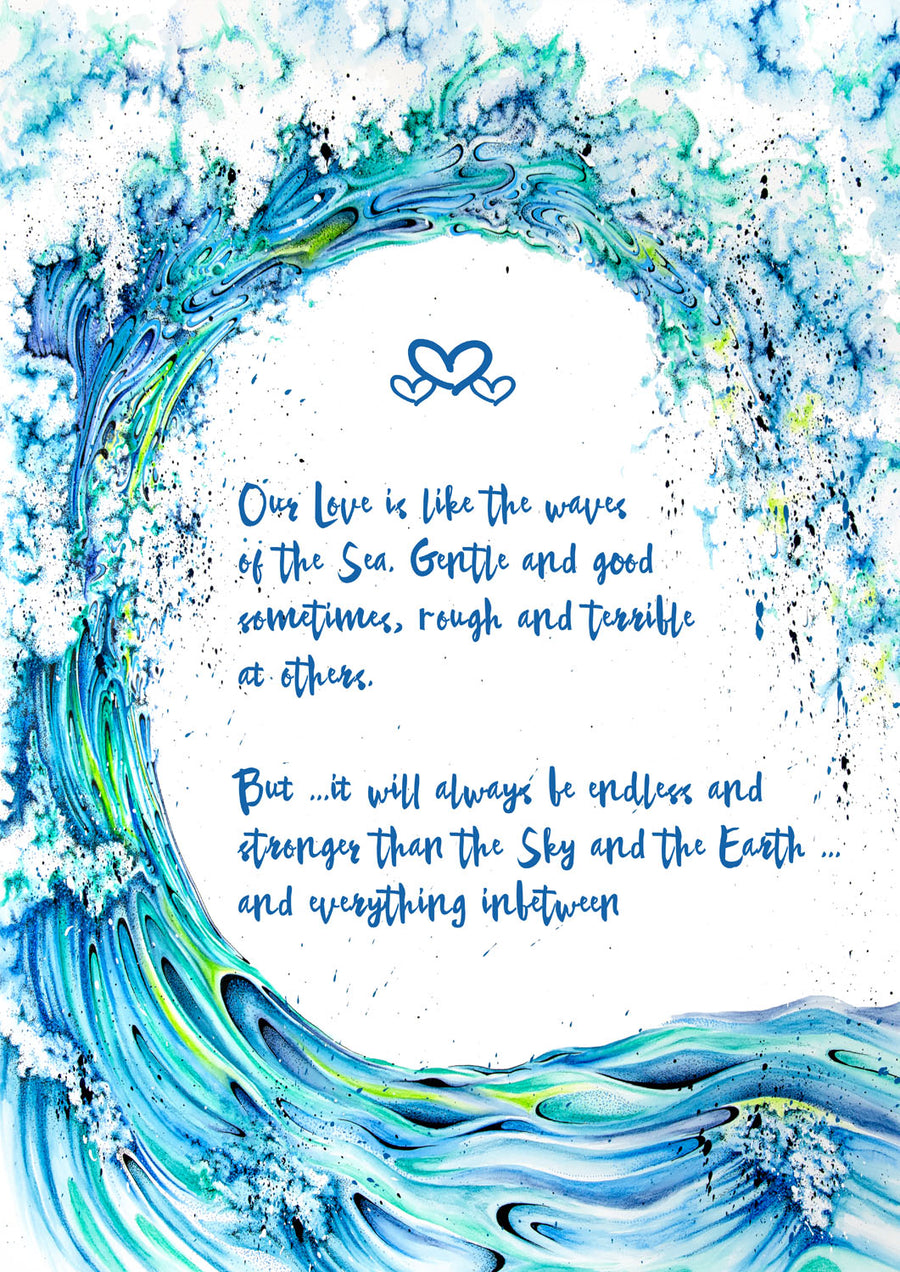 Our Love is like the waves
of the Sea. Gentle and good
sometimes, rough and terrible
at others.
But ...it will always be endless and
stronger than the Sky and the Earth ...
and everything inbetween